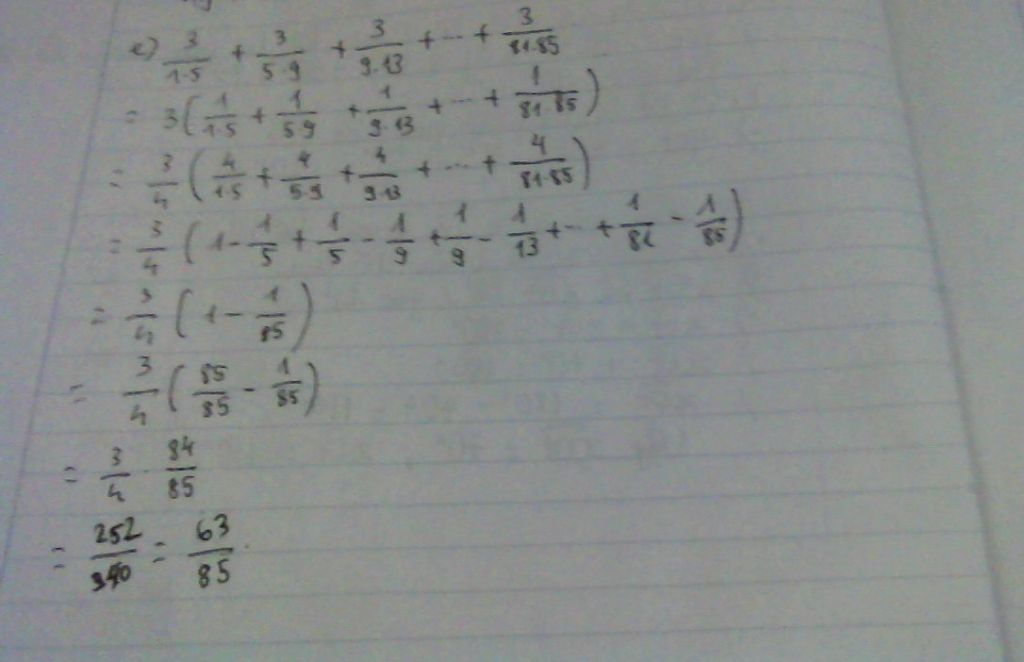 e) 3/1·5 + 3/5·9 + 3/9·13 + ... + 3/81·85
= 3(1/1·5 + 1/5·9 + 1/9·13 + ... + 1/81·85)
= 3/4 (4/1·5 + 4/5·9 + 4/9·13 + ... + 4/81·85)
= 3/4 (1 - 1/5 + 1/5 - 1/9 + 1/9 - 1/13 + ... + 1/81 - 1/85)
= 3/4 (1 - 1/85)
= 3/4 (85/85 - 1/85)
= 3/4 · 84/85
= 252/340 = 63/85.